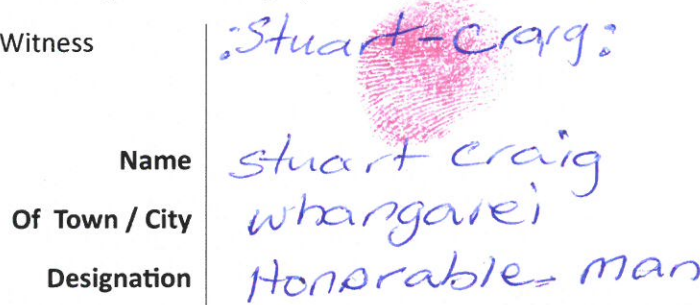 Witness :Stuart-Craig:
Name Stuart Craig
Of Town / City whangarei
Designation Honorable- man